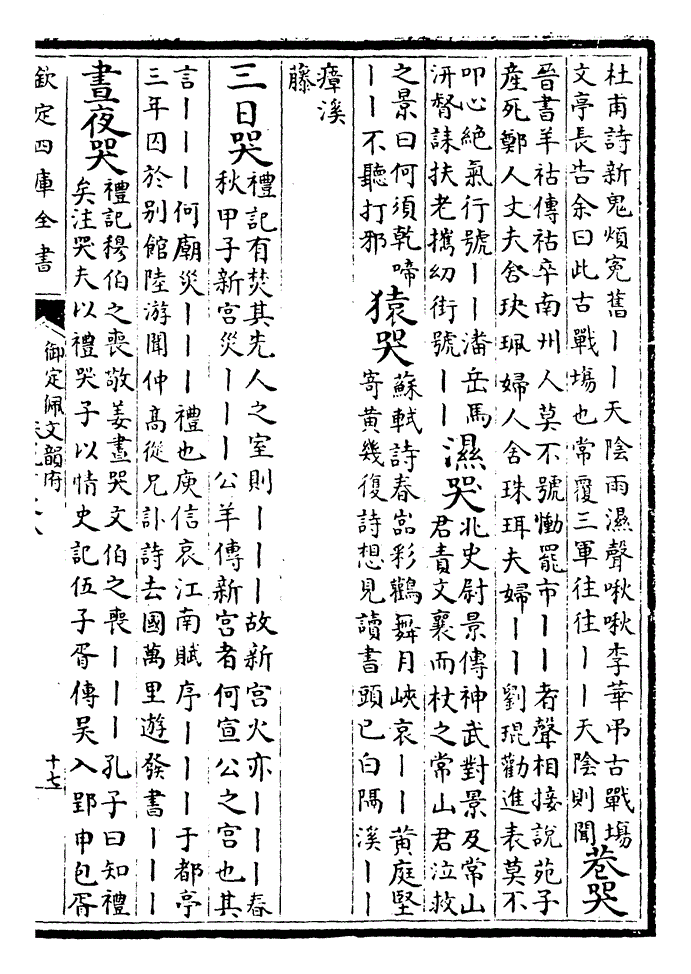 杜甫詩新鬼煩寃舊丨丨天陰雨濕聲啾啾李華弔古戰塲
文亭長告余曰此古戰塲也常覆三軍往往丨丨天陰則聞
巷哭
晉書羊祜傳祜卒南州人莫不號慟罷市丨丨者聲相接說苑子
產死鄭人丈夫舍玦珮婦人舍珠珥夫婦丨丨劉琨勸進表莫不
叩心絶氣行號丨丨潘岳馬
汧督誄扶老攜幼街號丨丨
濕哭
北史尉景傳神武對景及常山
君責文襄而杖之常山君泣救
之景曰何須乾啼
丨丨不聽打邪
猿哭
蘇軾詩春嵓彩鸐舞月峽哀丨丨黄庭堅
寄黄幾復詩想見讀書頭已白隔溪丨丨
瘴溪
藤
三日哭
禮記有焚其先人之室則丨丨丨故新宮火亦丨丨丨春
秋甲子新宮災丨丨丨公羊傳新宮者何宣公之宮也其
言丨丨丨何廟災丨丨丨禮也庾信哀江南賦序丨丨丨于都亭
三年囚於别館陸游聞仲高從兄訃詩去國萬里遊發書丨丨丨
晝夜哭
禮記穆伯之喪敬姜晝哭文伯之喪丨丨丨孔子曰知禮
矣注哭夫以禮哭子以情史記伍子胥傳吳入郢申包胥
欽定四庫全書
御定佩文韻府
十七